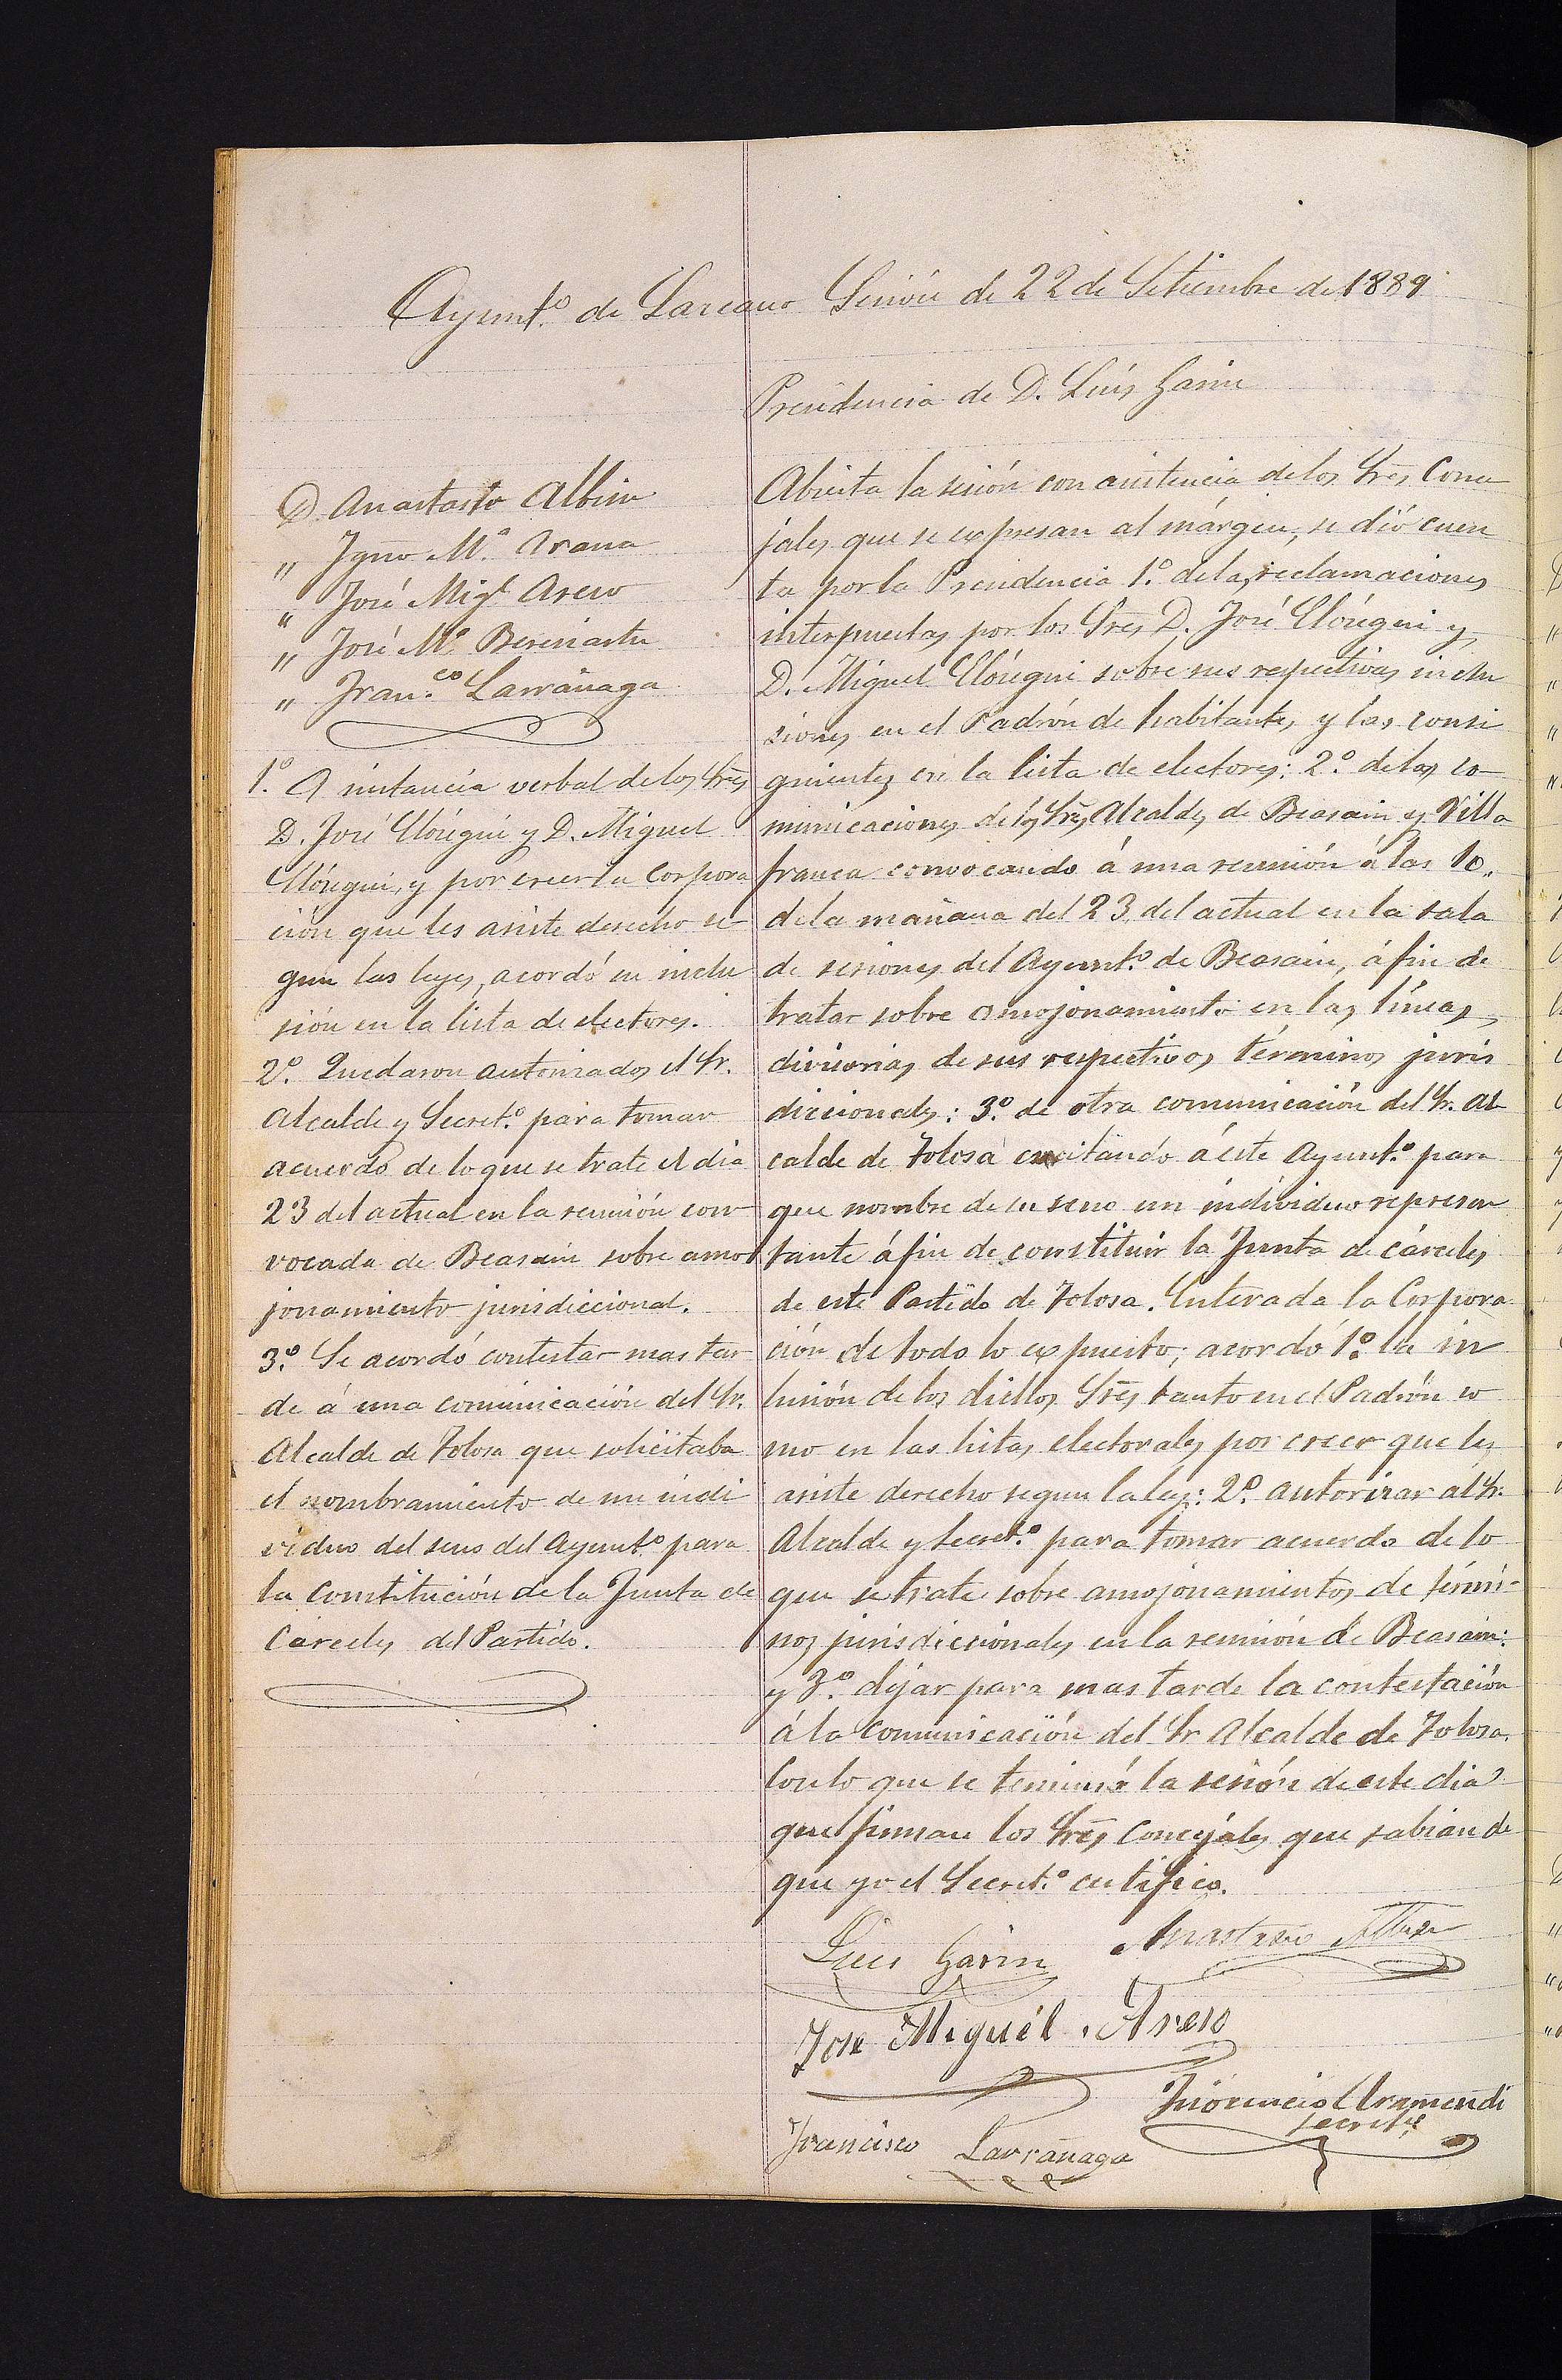 Ayunt.º de Lazcano Sesión de 22 de Setiembre de 1889
Presidencia de D. Luis Garin
D. Anastasio Albisu
„ Ygno M.ª Arana
„ José Mig.l Areso
„ José M.ª Beriiartu
„ Fran.co Larrañaga
1.º A instancia verbal de los Sres
D. José Elósegui y D. Miguel
Elósegui, y por creer la Corpora
ción que les asiste derecho se
gun las leyes, acordó su inclu
sión en la lista de electores.
2.º Quedaron autorizados el Sr.
Alcalde y Secret.º para tomar
acuerdo de lo que se trate el dia
23 del actual en la reunión con
vocada de Beasain sobre amo
jonamiento jurisdiccional.
3.º Se acordó contestar mas tar
de á una comunicación del Sr.
Alcalde de Tolosa que solicitaba
el nombramiento de un indi
viduo del seno del Ayunt.º para
la Constitución de la Junta de
Carceles del Partido.
Abierta la sesión con asistencia de los Sres Conce
jales que se expresan al márgen, se dió cuen
ta por la Presidencia 1.º de las reclamaciones
interpuestas por los Sres D. José Elósegui y
D. Miguel Elósegui sobre sus respectivas inclu
siones en el Padrón de habitantes y las consi
guientes en la lista de electores: 2.º de las co
municaciones de los Sres Alcaldes de Beasain y Villa
franca convocando á una reunión á las 10,
de la mañana del 23 del actual en la sala
de sesiones del Ayunt.º de Beasain, á fin de
tratar sobre amojonamiento en las líneas
divisorias de sus respectivos términos juris
diccionales: 3.º de otra comunicación del Sr. Al
calde de Tolosa excitando á éste Ayunt.º para
que nombre de su seno un individuo represen
tante á fin de constituir la Junta de cárceles
de este Partido de Tolosa. Enterada la Corpora
ción de todo lo expuesto; acordó 1.º la in
lusión de los dichos Sres tanto en el Padrón co
mo en las listas electorales por creer que les
asiste derecho segun la ley: 2.º autorizar al Sr.
Alcalde y Secret.º para tomar acuerdo de lo
que se trate sobre amojonamientos de térmi-
nos jurisdiccionales en la reunión de Beasain:
y 3.º dejar para mas tarde la contestación
á la comunicación del Sr Alcalde de Tolosa.
Con lo que se terminó la sesión de este dia
que firman los Sres Concejales que sabian de
que yo el Secret.º certifico.
Luis Garin Anastasio Albisu
Jose Miguel Areso
Inocencio Aramendi
Secret.º
Francisco Larrañaga